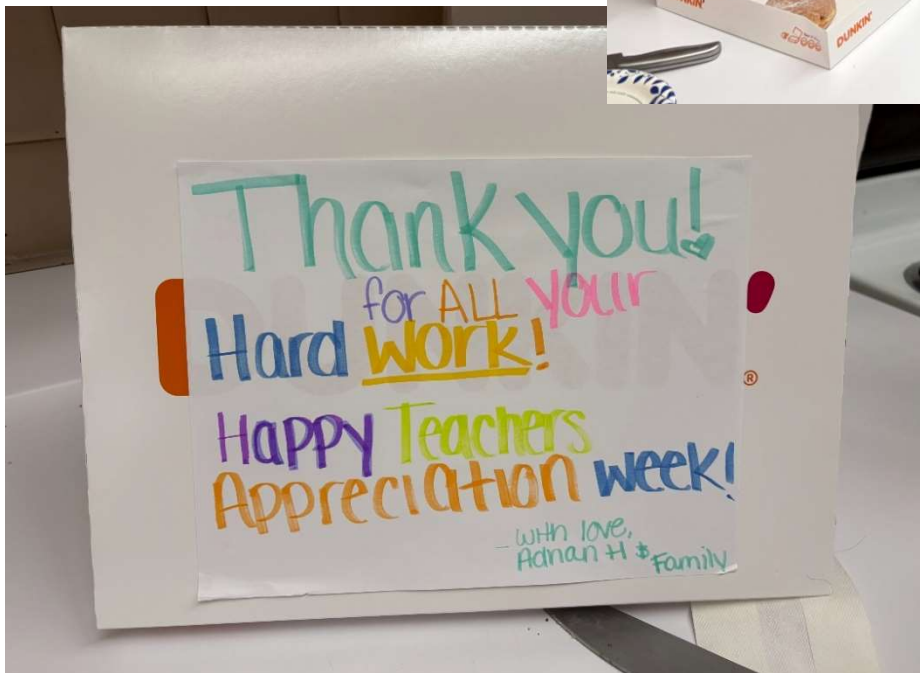 DUNKIN'
DUNKIN'
Thank you!
for ALL your
Hard Work!
Happy Teachers
Appreciation week!
- with love,
Adnan H $ Family
DUNKIN
®